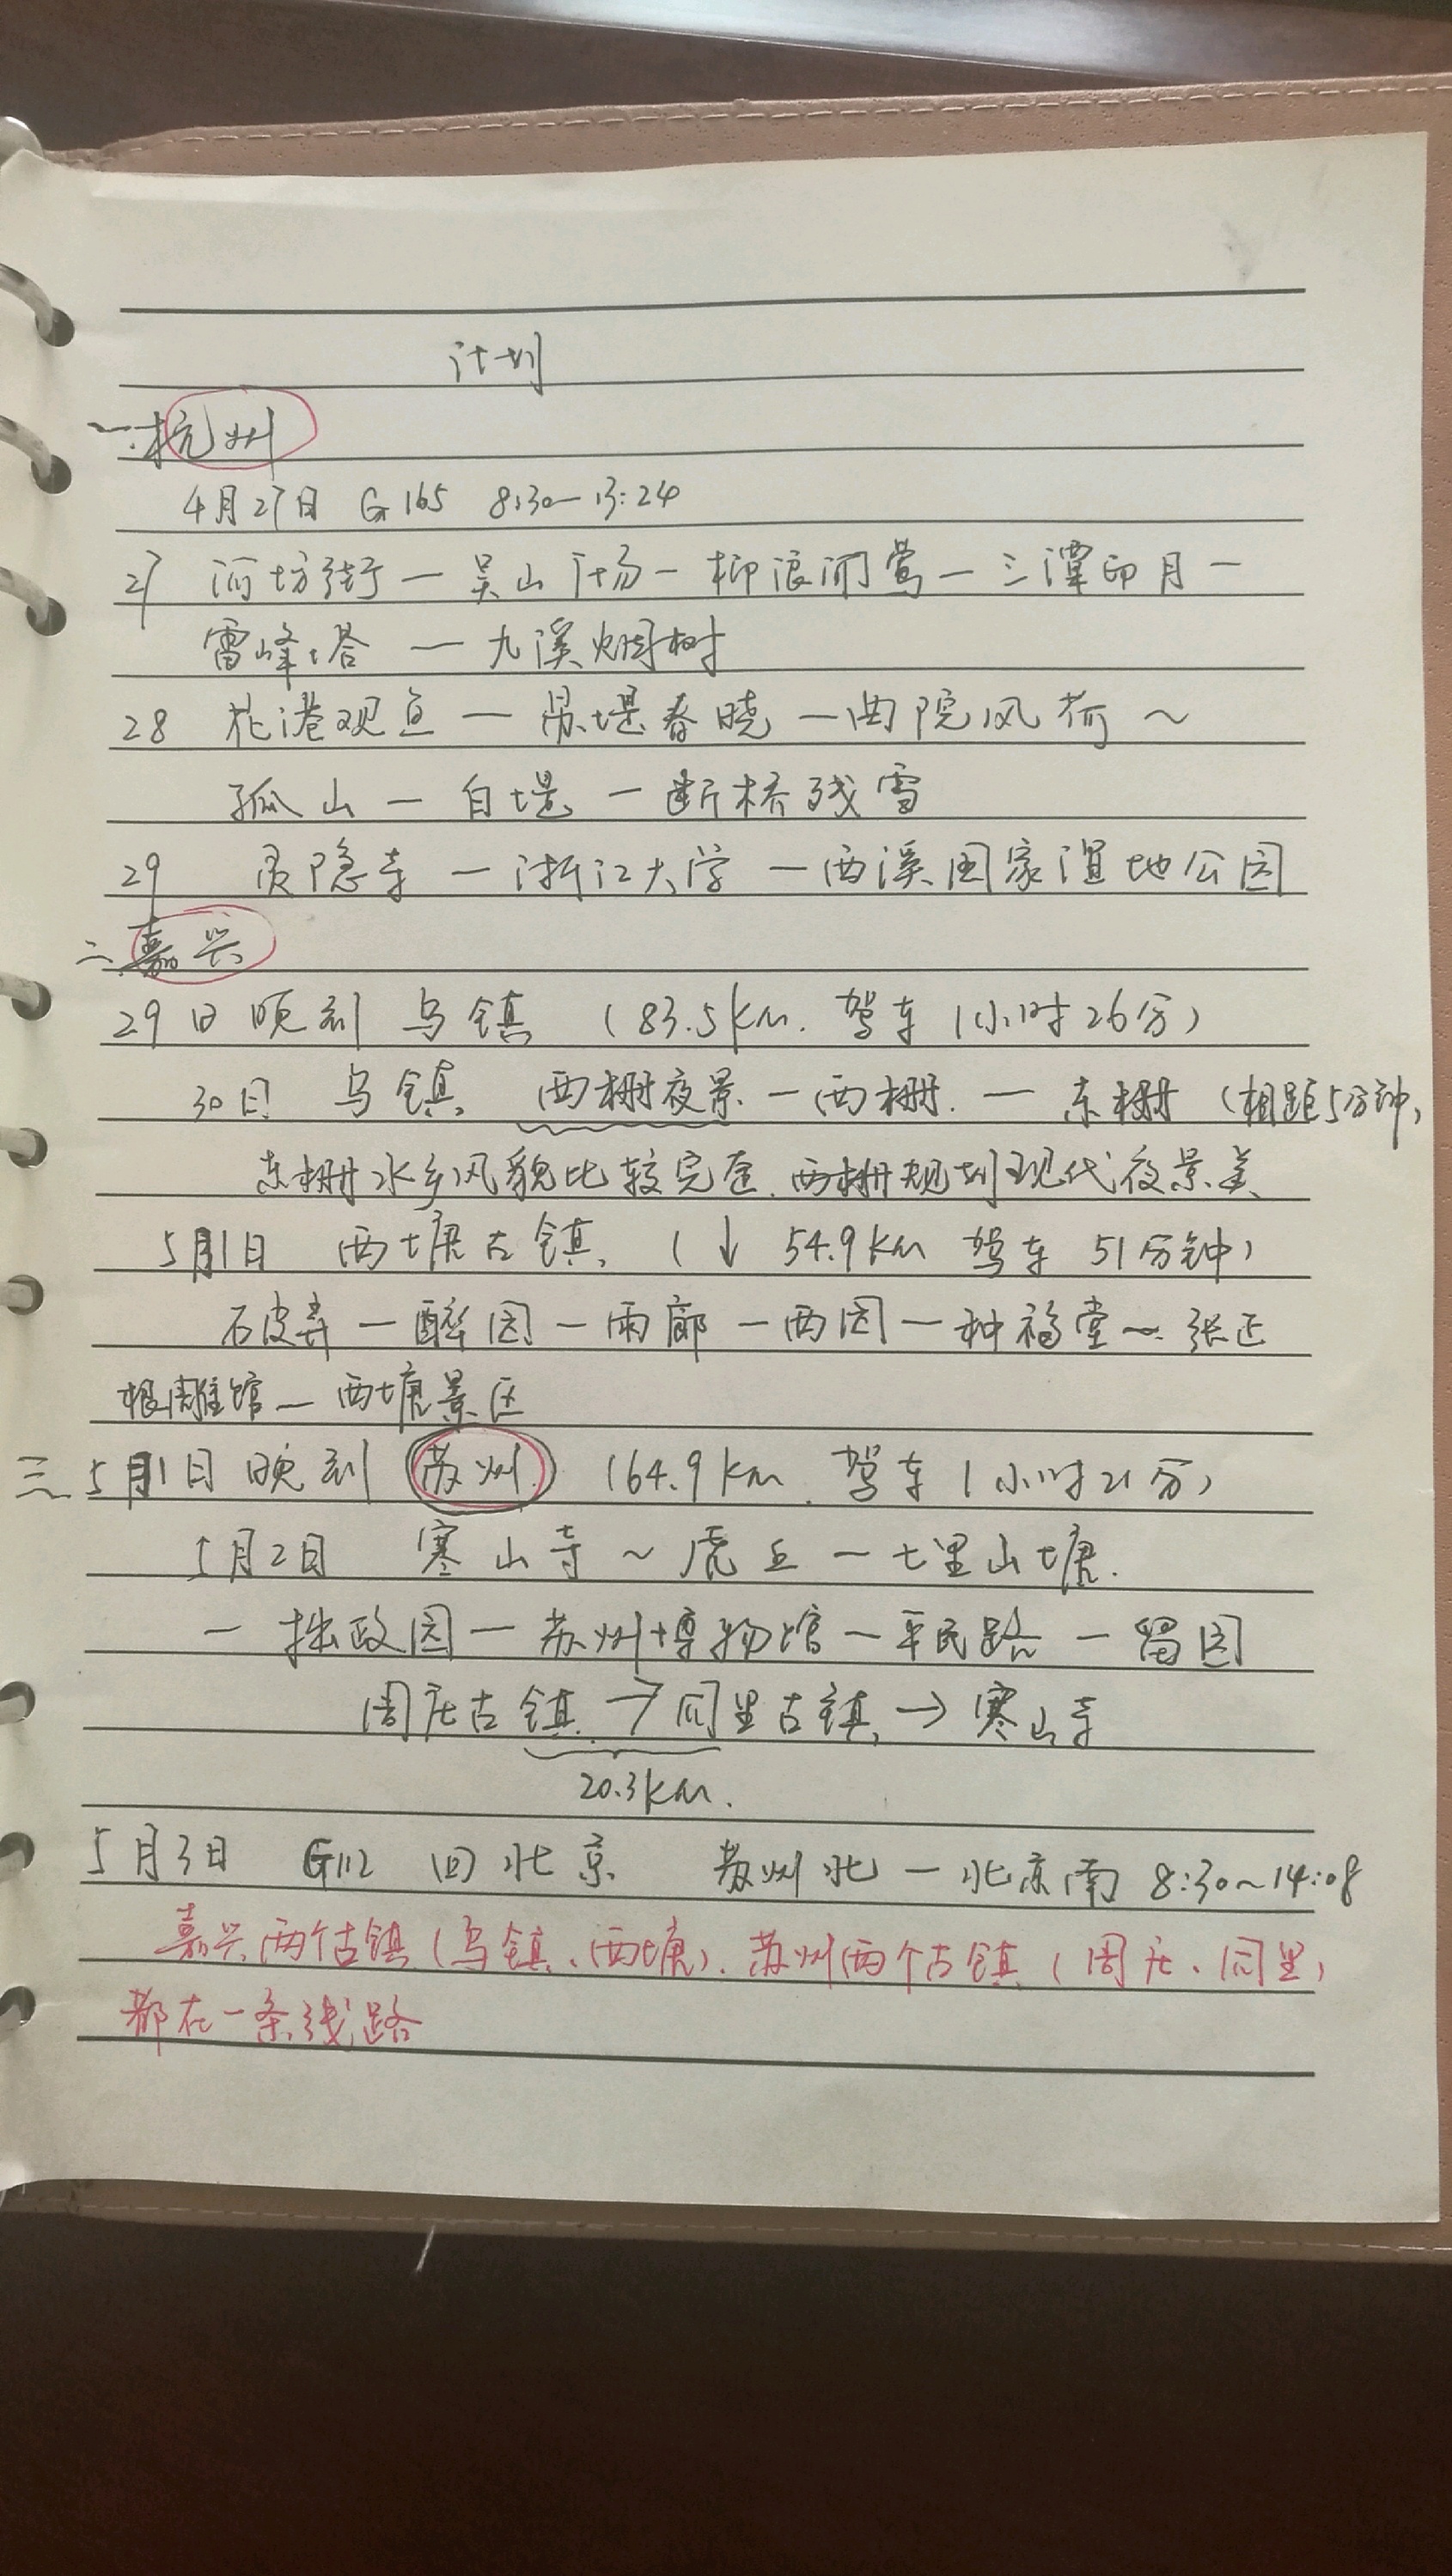 计划
一.杭州
4月27日 G165 8:30—13:24
27 河坊街—吴山广场—柳浪闻莺—三潭印月—
雷峰塔—九溪烟树
28 花港观鱼—苏堤春晓—曲院风荷～
孤山—白堤—断桥残雪
29 灵隐寺—浙江大学—西溪国家湿地公园
二.嘉兴
29日晚到乌镇（83.5km.驾车1小时26分）
30日 乌镇 西栅夜景—西栅.—东栅（相距5分钟,
东栅水乡风貌比较完整.西栅规划现代夜景美
5月1日 西塘古镇（↓ 54.9km 驾车 51分钟）
石皮弄—醉园—雨廊—西园—种福堂～张正
根雕馆—西塘景区
三 5月1日晚到 苏州（64.9km.驾车1小时21分）
5月2日 寒山寺～虎丘—七里山塘.
—拙政园—苏州博物馆—平民路—留园
周庄古镇→同里古镇→寒山寺
20.3km.
5月3日 G112 回北京 苏州北—北京南 8:30～14:08
嘉兴两个古镇（乌镇、西塘）.苏州两个古镇（周庄、同里）
都在一条线路